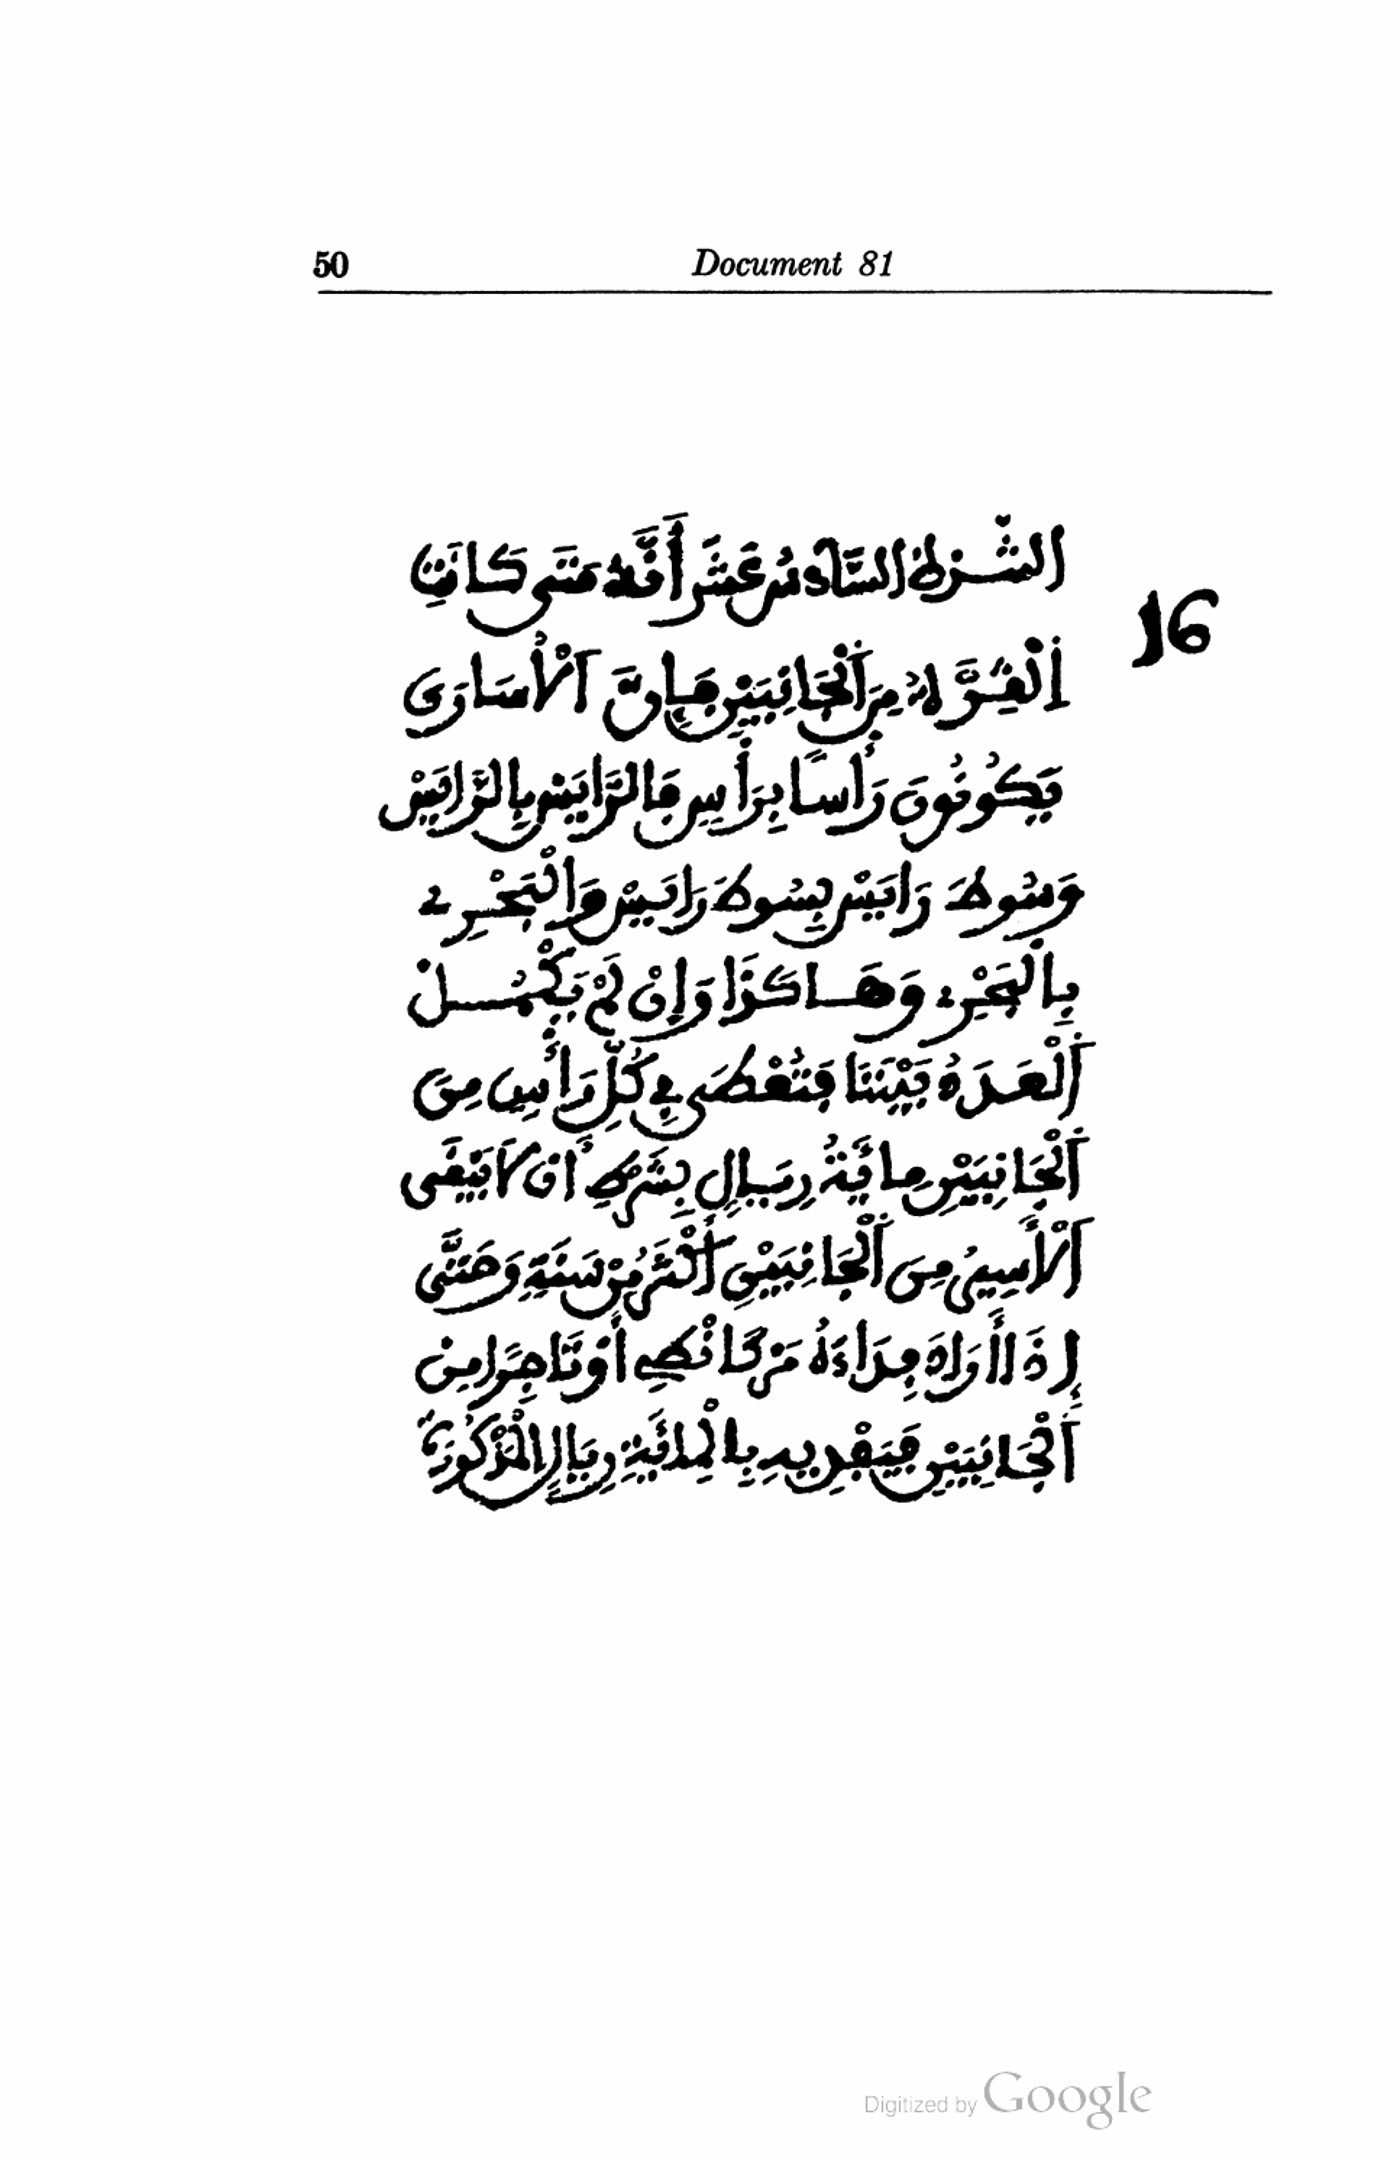 50 Document 81
16
الشَّرْطُ السَّادِسُ عَشَرَ أَنَّهُ مَتَى كَانَتِ
الْفِرَّةُ مِنَ الْجَانِبَيْنِ فَإِنَّ الْأَسَارَى
يَكُونُونَ رَأْسًا بِرَأْسِ فَالرَّايَسْ بِالرَّايَسْ
وَسُوطَ رَايَسْ بِسُوطَ رَايَسْ وَالْبَحْرِي
بِالْبَحْرِي وَهَاكَذَا وَإِنْ لَمْ يَكْمُلْ
الْعَدَدُ بَيْنَنَا فَتُعْطَى فِي كُلِّ رَأْسٍ مِنَ
الْجَانِبَيْنِ مِائَيَةُ رِيَالٍ بِشَرْطِ أَنْ لَا يَبْقَى
الْأَسِيرُ مِنَ الْجَانِبَيْنِ أَكْثَرَ مِنْ سَنَةٍ وَحَتَّى
إِذَا أَرَادَ فِدَاءَهُ مَرْكَانْطِي أَوْ تَاجِرًا مِنَ
الْجَانِبَيْنِ فَيَفْدِيهِ بِالْمِائَةِ رِيَالِ الْمَذْكُورَةِ
Digitized by Google